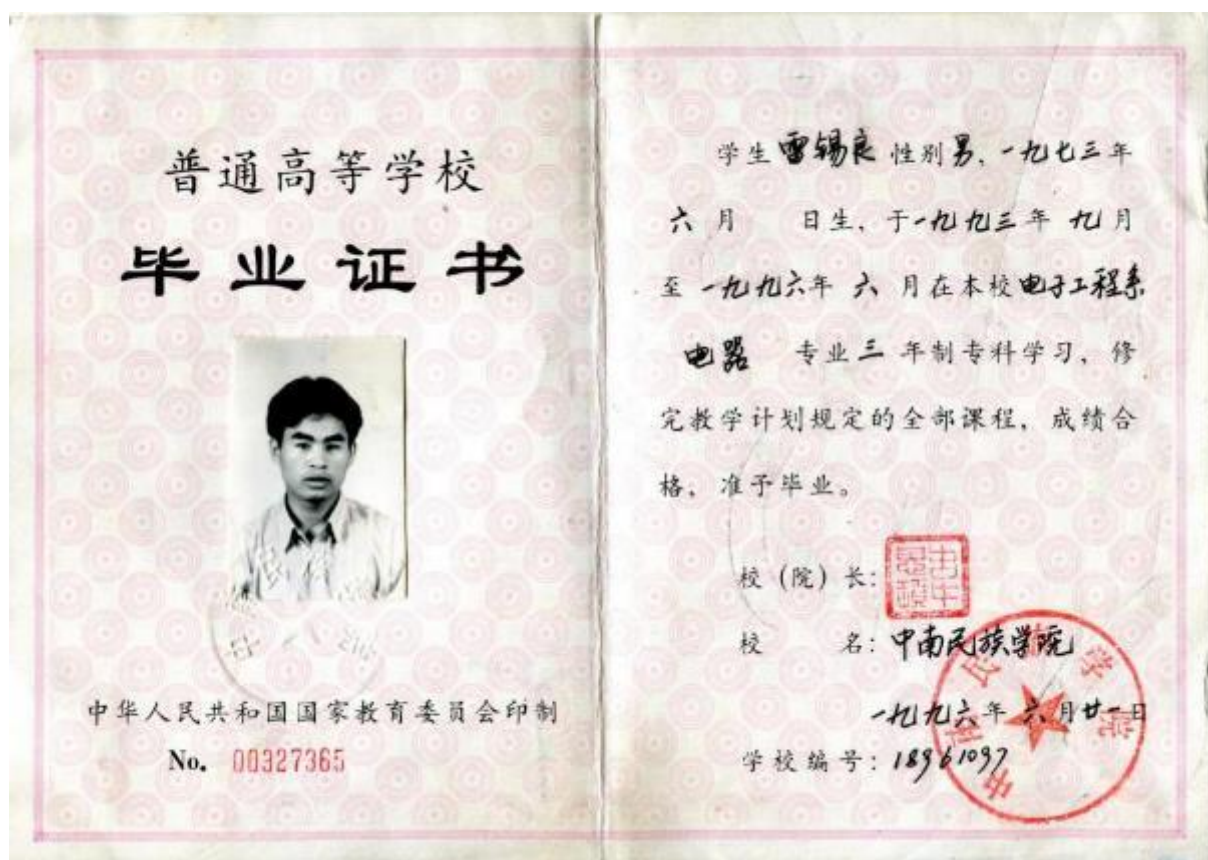 普通高等学校
毕业证书
中华人民共和国国家教育委员会印制
No. 00327365
学生雷锡良性别男、一九七三年
六月 日生、于一九九三年九月
至一九九六年六月在本校电子工程系
电器 专业三年制专科学习，修
完教学计划规定的全部课程，成绩合
格，准予毕业。
校（院）长：
校 名：中南民族学院
一九九六年六月廿一日
学校编号：18961097
中南民族学院